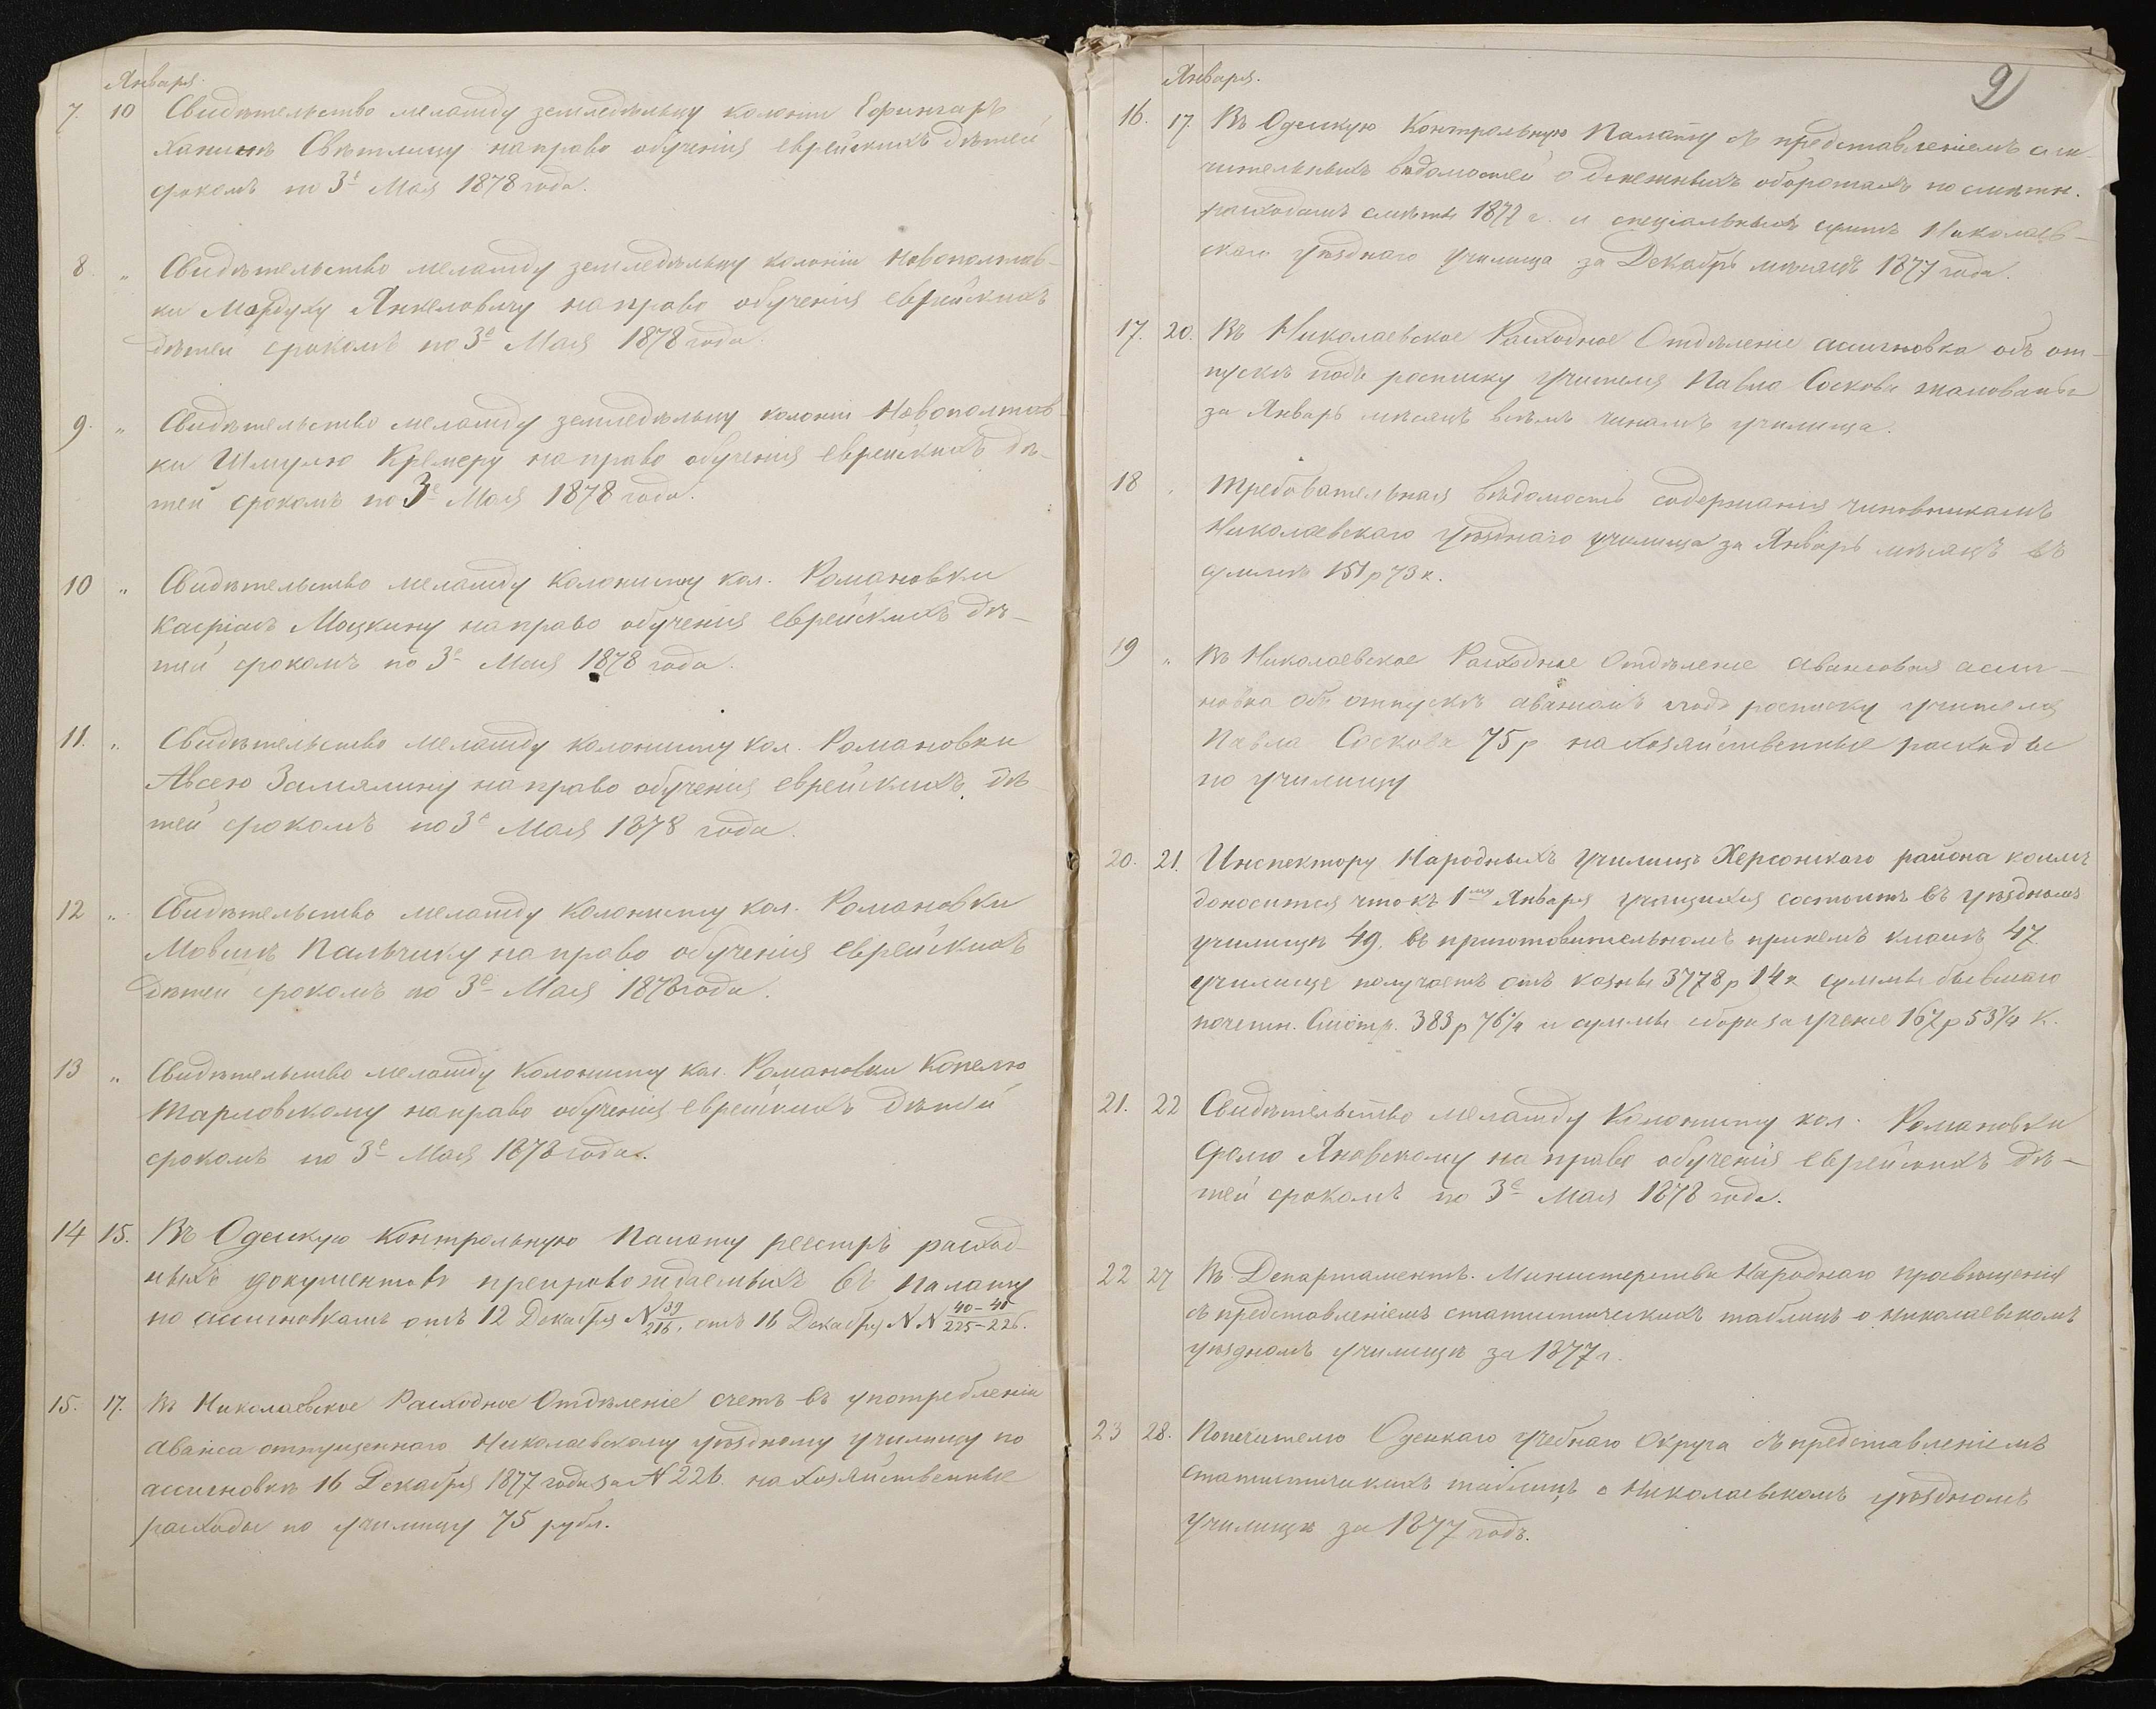 Января.
7. 10 Свидѣтельство меламду земледѣльцу колоніи Ефингаръ
Свѣтлицу на право обученія еврейскихъ дѣтей
срокомъ по 3е Мая 1878 года.
8. " Свидѣтельство меламду земледѣльцу колоніи Новополтав-
ки Мордуху Янкеловичу на право обученія еврейскихъ
дѣтей срокомъ по 3е Мая 1878 года.
9. " Свидѣтельство меламду земледѣльцу колоніи Новополтав-
ки Шмулю Кремеру на право обученія еврейскихъ дѣ-
тей срокомъ по 3е Мая 1878 года.
10 " Свидѣтельство меламду колонисту кол. Романовки
Касріелъ Моцкину на право обученія еврейскихъ дѣ-
тей срокомъ по 3е Мая 1878 года.
11. " Свидѣтельство меламду колонисту кол. Романовки
Авсею Замялину на право обученія еврейскихъ дѣ
тей срокомъ по 3е Мая 1878 года.
12 " Свидѣтельство меламду колонисту кол. Романовки
Мовшѣ Пальчику на право обученія еврейскихъ
дѣтей срокомъ по 3е Мая 1878 года.
13 " Свидѣтельство меламду колонисту кол. Романовки Копелю
Тарловскому на право обученія еврейскихъ дѣтей
срокомъ по 3е Мая 1878 года.
14 15. Въ Одескую Контрольную Палату реестръ расход-
ныхъ документовъ препровождаемыхъ въ Палату
по ассигновкамъ отъ 12 Декабря N 39/216, отъ 16 Декабря N N 40-41/225-226.
15. 17. Въ Николаевское Расходное Отдѣленіе счетъ въ употребленіи
аванса отпущеннаго Николаевскому уѣздному училищу по
ассигновкѣ 16 Декабря 1877 года за N 226. на хозяйственные
расходы по училищу 75 рубл.
9
Января.
16. 17. Въ Одескую Контрольную Палату съ представленіемъ
вѣдомостей о денежныхъ оборотахъ по смѣтн.
расходамъ смѣты 1877 г. и спеціальныхъ суммъ Николаев-
скаго уѣзднаго училища за Декабрь мѣсяцъ 1877 года.
17. 20. Въ Николаевское Расходное Отдѣленіе ассигновка объ от-
пускѣ подъ росписку учителя Павла Соскова жалованья
за Январь мѣсяцъ всѣмъ чинамъ училища.
18 " Требовательная вѣдомость содержанія чиновникамъ
Николаевскаго уѣзднаго училища за Январь мѣсяцъ въ
суммѣ 151 р 73 к.
19 " Въ Николаевское Расходное Отдѣленіе авансовая ассиг-
новка объ отпускѣ авансомъ подъ росписку учителя
Павла Соскова 75 р на хозяйственные расходы
по училищу
20. 21. Инспектору Народныхъ Училищъ Херсонскаго района коимъ
доносится что къ 1му Января учащихся состоитъ въ уѣздномъ
училищѣ 49, въ приготовительномъ при немъ классѣ 47.
училище получаетъ отъ казны 3778 р 14 к суммы бывшаго
почетн. Смотр. 383 р 76 1/4 и суммы сбора за ученіе 167 р 53 3/4 к.
21. 22 Свидѣтельство меламду колонисту кол. Романовки
Яновскому на право обученія еврейскихъ дѣ-
тей срокомъ по 3е Мая 1878 года.
22 27 Въ Департаментъ Министерства Народнаго просвѣщенія
съ представленіемъ статистическихъ таблицъ о Николаевскомъ
уѣздномъ училищѣ за 1877 г.
23 28. Попечителю Одескаго Учебнаго Округа съ представленіемъ
статистическихъ таблицъ о Николаевскомъ уѣздномъ
училищѣ за 1877 годъ.